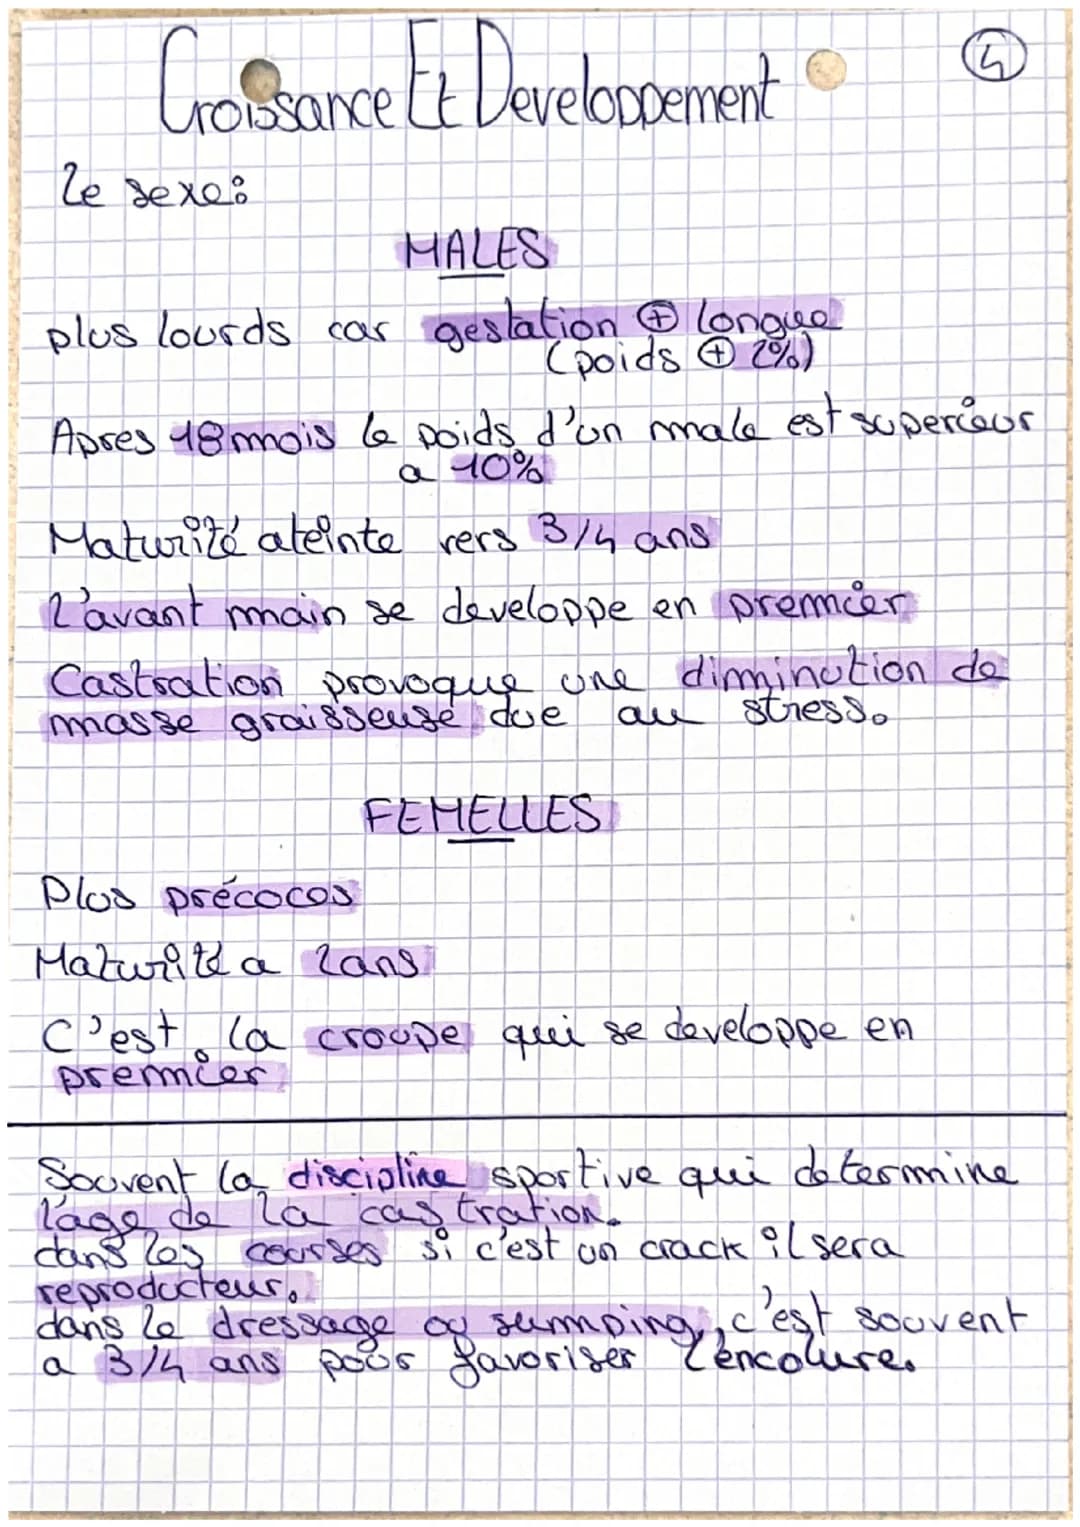 Croissance Et Developpement
4
Le sexe:
MALES
plus lourds car gestation ⊕ longue
(poids ⊕ 2%)
Apres 18 mois le poids d'un male est superieur
a 10%
Maturité ateinte vers 3/4 ans
L'avant main se developpe en premier
Castration provoque une diminution de
masse graisseuse due au stress.
FEMELLES
Plus précoces
Maturité a 2ans
C'est la croupe qui se developpe en
premier
Souvent la discipline sportive qui determine
l'age de la castration.
dans les courses si c'est un crack il sera
reproducteur.
dans le dressage ou jumping, c'est souvent
a 3/4 ans pour favoriser l'encolure.